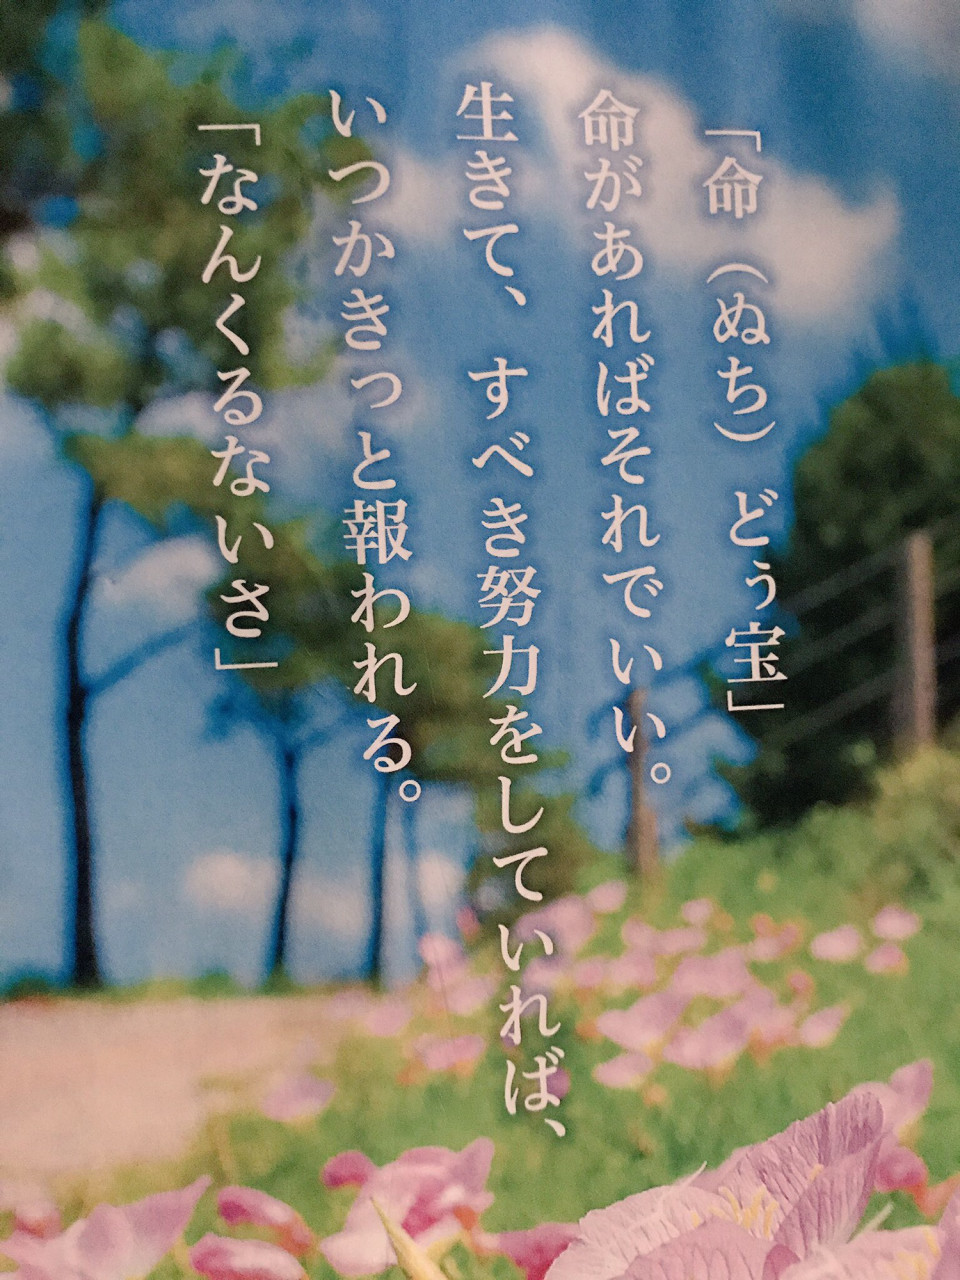 「命（ぬち）どぅ宝」
命があればそれでいい。
生きて、すべき努力をしていれば、
いつかきっと報われる。
「なんくるないさ」